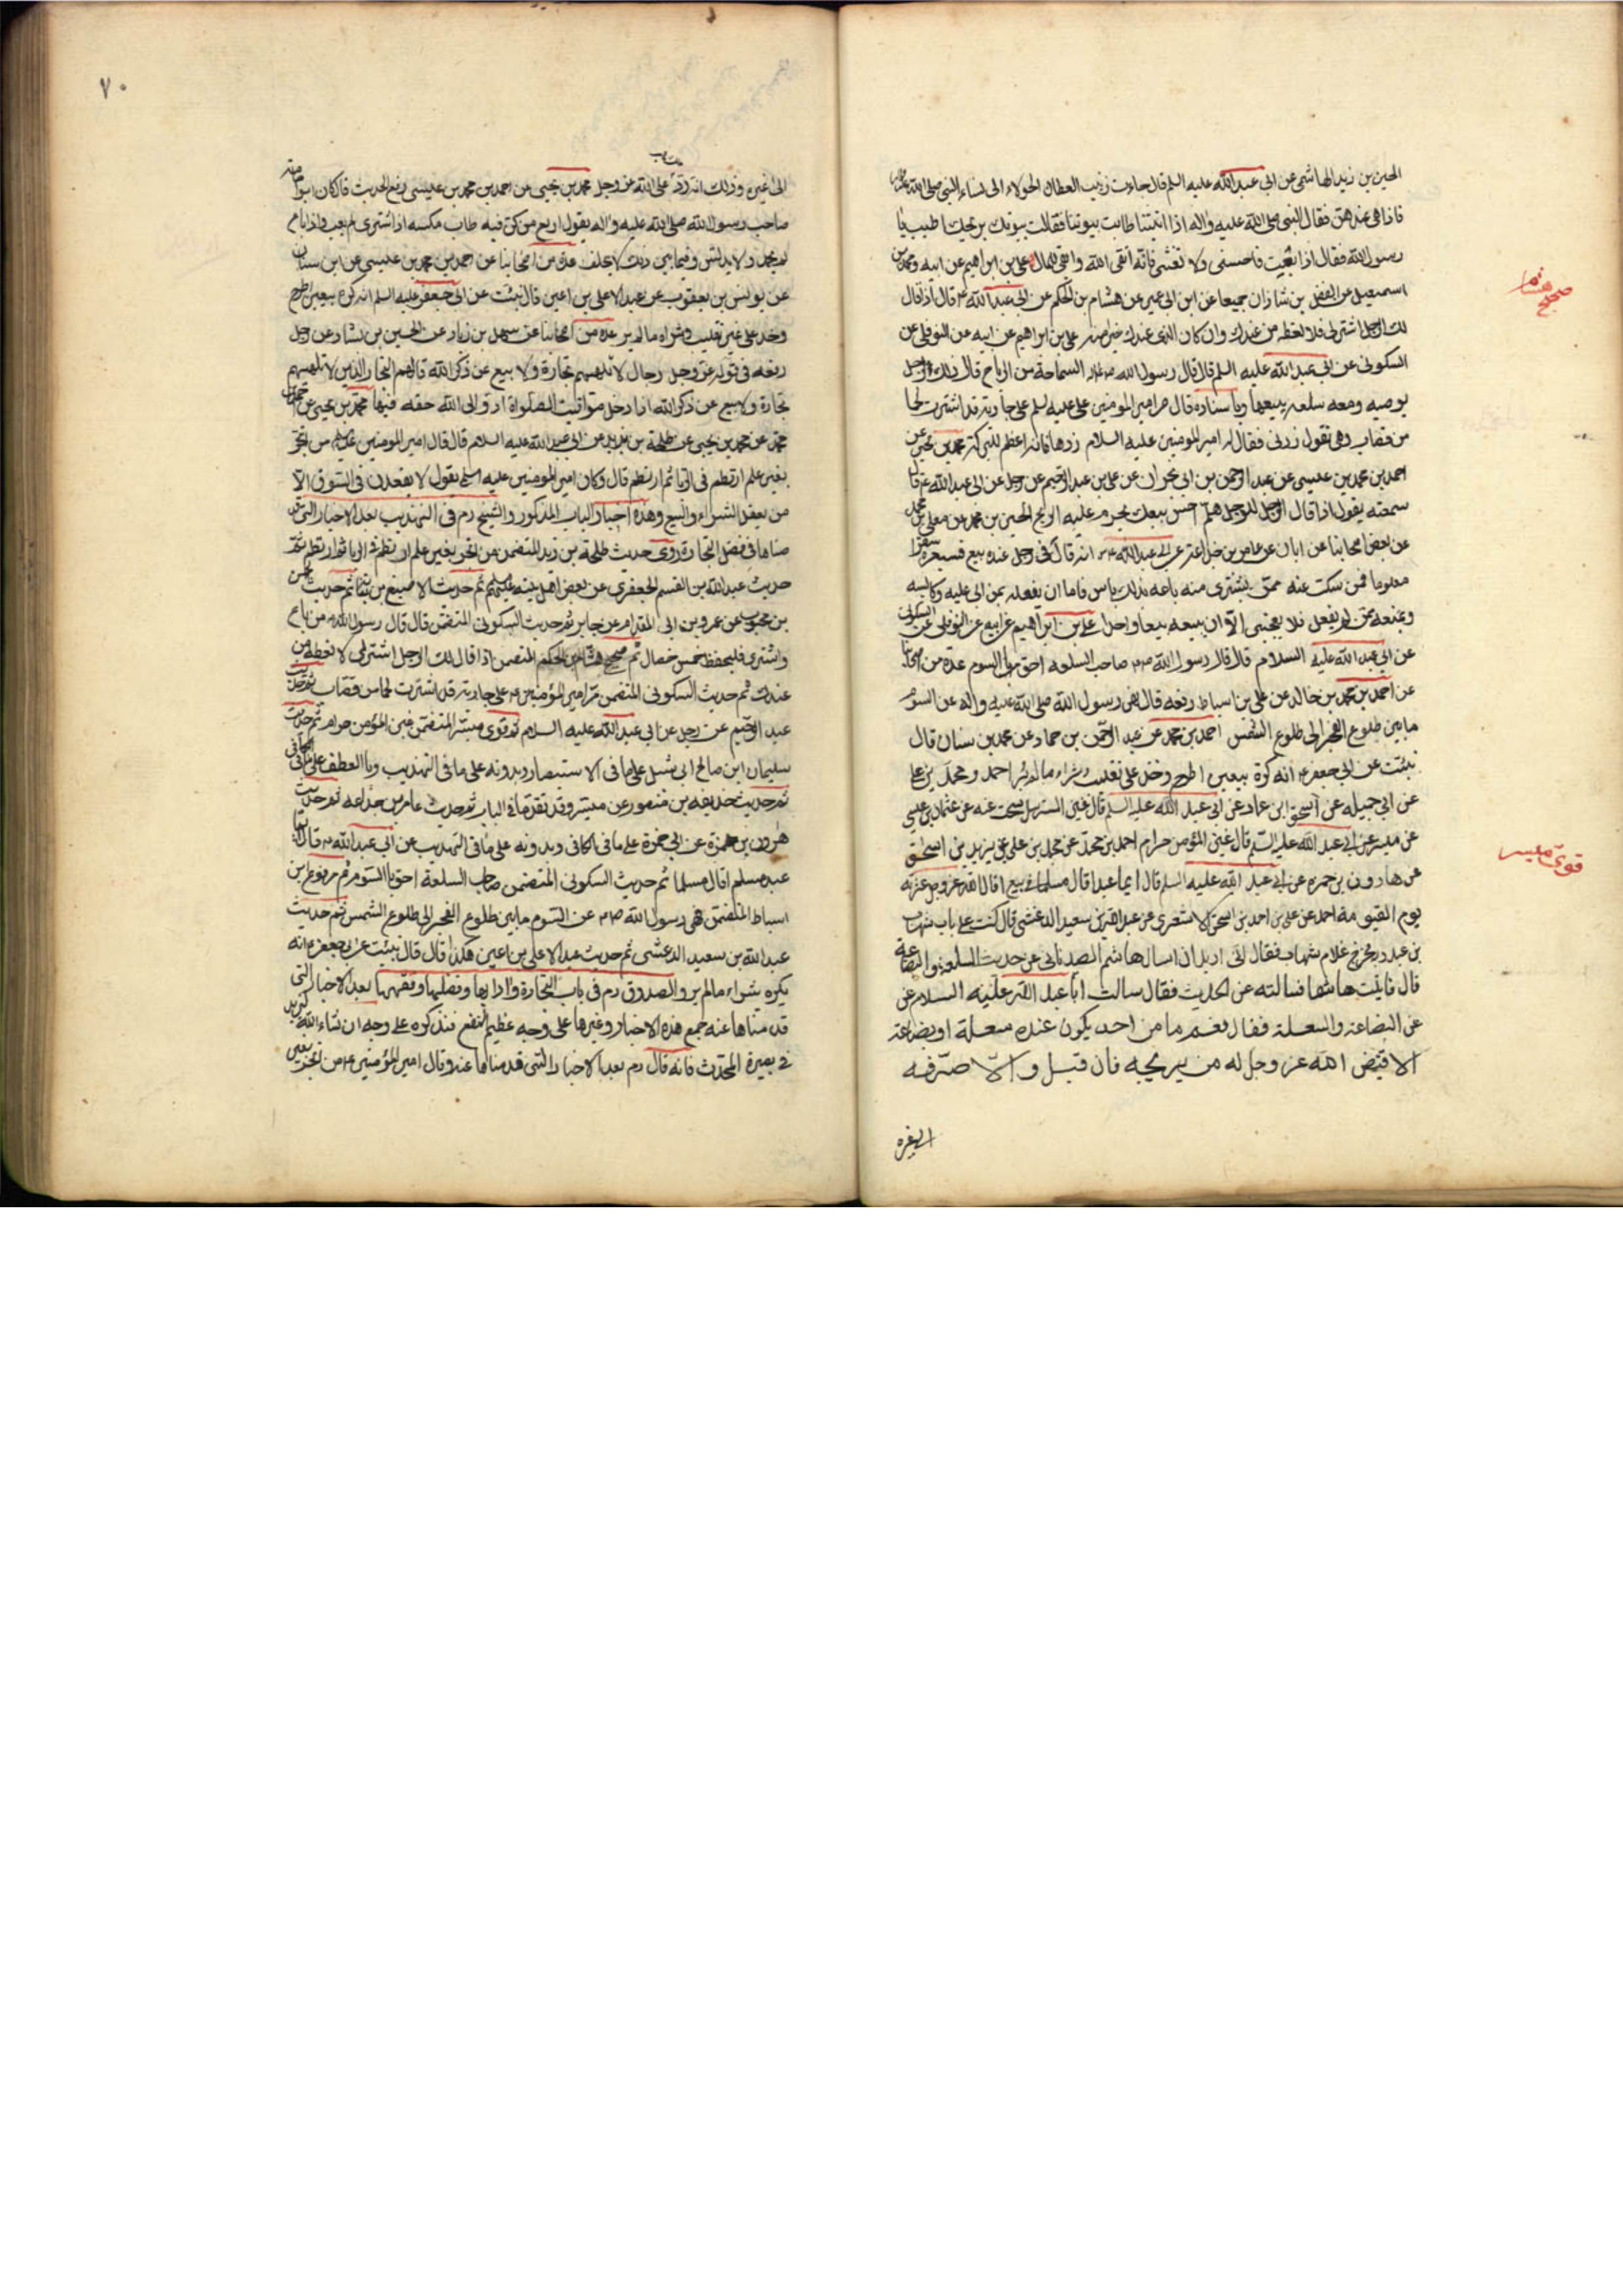 الحسين بن زيد الهاشمي عن ابي عبدالله عليه السلم قال جاءت زينب العطارة الحولاء الى نساء النبي صلى الله عليه واله
فاذا هى عندهن فقال النبي صلى الله عليه واله اذا اتيتنا طابت بيوتنا فقالت بيوتك بريحك اطيب يا
رسول الله فقال اذا بعت فاحسني ولا تغشى فانه اتقى الله وابقى للمال علي بن ابراهيم عن ابيه ومحمد بن
اسمعيل عن الفضل بن شاذان جميعا عن ابن ابي عمير عن هشام بن الحكم عن ابي عبدالله ع قال اذا قال
لك الرجل اشتر لى فلا تعطه من عندك وان كان الذى عندك خيرا منه علي بن ابراهيم عن ابيه عن النوفلى عن
السكونى عن ابي عبدالله عليه السلم قال قال رسول الله السماحة من الرباح قال ذلك لرجل
يوصيه ومعه سلعه يبيعها وباسناده قال مر امير المومنين على عليه السلم على جارية قد اشترت لحما
من قصاب وهى تقول زدنى فقال له امير المومنين عليه السلام زدها فانه اعظم للبركة محمد بن يحيى عن
احمد بن محمد بن عيسى عن عبد الرحمن بن ابي نجران عن على بن عبد الرحيم عن رجل عن ابى عبدالله ع قال
سمعته يقول اذا قال الرجل للرجل هلم احسن بيعك يحرم عليه الربح الحسين بن محمد عن معلى بن محمد
عن بعض اصحابنا عن ابان عن عامر بن جذاعة عن ابى عبدالله ع انه قال فى رجل عنده بيع فسعره سعرا
معلوما فمن سكت عنه ممن يشترى منه باعه بذلك باس فاما ان يفعله بمن ابى عليه وكايسه
ويمنعه ممن لم يفعل فلا يعجبنى الا ان يبيعه بيعا واحدا على بن ابراهيم عن ابيه عن النوفلى عن السكونى
عن ابى عبدالله عليه السلام قال قال رسول الله صاحب السلعه احق بالسوم عدة من اصحابنا
عن احمد بن محمد بن خالد عن على بن اسباط رفعه قال نهى رسول الله صلى الله عليه واله عن السوم
ما بين طلوع الفجر الى طلوع الشمس احمد بن محمد عن عبد الرحمن بن حماد عن محمد بن سنان قال
نبئت عن ابى جعفر انه كره بيعين اطرح وخذ على غير تقليب وشراء ما لم ير احمد ومحمد بن على
عن ابى جميله عن اسحق ابن عمار عن ابى عبد الله عليه السلم قال غبن المسترسل سحت عنه عن عثمان بن عيسى
عن ميسر عن ابى عبد الله عليه السلم قال غبن المؤمن حرام احمد بن محمد عن محمد بن على عن يزيد بن اسحق
عن هارون بن حمزه عن ابى عبد الله عليه السلم قال ايما عبد اقال مسلما فى بيع اقال الله عز وجل عثرته
يوم القيمة احمد عن على بن احمد بن اسحق الاشعرى عن عبدالله بن سعيد الدغشى قال كنت على باب شهاب
بن عبد ربه فخرج غلام شهاب فقال انى اريد ان اسال هاشم الصيدنانى عن حديث السلعة والبضاعة
قال فاتيت هاشما فسالته عن الحديث فقال سالت ابا عبد الله عليه السلام عن
عن البضاعة والسعلة فقال نعم ما من احد يكون عنده سعلة او بضاعة
الا قيض الله عز وجل له من يربحه فان قبل والا صرفه
الى غيره
صحيح هشام
قوى ميسر
٧٠
الى غيره وذلك انه رد على الله عز وجل محمد بن يحيى عن احمد بن محمد بن عيسى رفع الحديث قال كان ابو
صاحب رسول الله صلى الله عليه واله يقول اربع من كن فيه طاب مكسبه اذا اشترى لم يعب واذا باع
لم يحمد ولا يدلس وفيما بين ذلك لا يحلف عدة من اصحابنا عن احمد بن محمد بن عيسى عن ابن سنان
عن يونس بن يعقوب عن عبد الاعلى بن اعين قال نبئت عن ابى جعفر عليه السلم انه كره بيعين اطرح
وخذ على غير تقليب وشراه ما لم ير عدة من اصحابنا عن سهل بن زياد عن الحسين بن بشار عن رجل
رفعه فى قوله عز وجل رجال لا تلهيهم تجارة ولا بيع عن ذكر الله قال هم التجار الذين لا تلهيهم
تجارة ولا بيع عن ذكر الله اذا دخل مواقيت الصلواة ادوا الى الله حقه فيها محمد بن يحيى عن احمد بن
محمد عن محمد بن يحيى عن طلحة بن زيد عن ابى عبد الله عليه السلام قال قال امير المومنين من اتجر
بغير علم ارتطم فى الربا ثم ارتطم قال وكان امير المومنين عليه السلم يقول لا يقعدن فى السوق الا
من يعقل الشراء والبيع وهذه اخبار الباب المذكور والشيخ رحم فى التهذيب بعد الاخبار التى قد
مناها فى فضل التجارة روى حديث طلحة بن زيد المتضمن من اتجر بغير علم ارتطم فى الربا ثم ارتطم ثم
حديث عبدالله بن القسم الجعفرى عن بعض اهل بيته ثم حديث الاصبغ بن نباته ثم حديث الحسن
بن محبوب عن عمرو بن ابى المقدام عن جابر ثم حديث السكونى المتضمن قال قال رسول الله من باع
واشترى فليحفظ خمس خصال ثم صحيح هشام بن الحكم المتضمن اذا قال لك الرجل اشتر لى لا تعطه من
عندك ثم حديث السكونى المتضمن مر امير المؤمنين على جارية قد اشترت لحما من قصاب ثم حديث
عبد الرحيم عن رجل عن ابى عبد الله عليه السلام ثم قوى ميسر المتضمن غبن المؤمن حرام ثم حديث
سليمان ابن صالح ابى شبل على ما فى الاستبصار وبدونه على ما فى التهذيب وبالعطف على ما فى الكافى
ثم حديث خذيفه بن منصور عن ميسر وقد تقدما فى الباب ثم حديث عامر بن جذاعه ثم حديث
هرون بن حمزة عن ابى حمزة على ما فى الكافى وبدونه على ما فى التهذيب عن ابى عبدالله قال ايما
عبد مسلم اقال مسلما ثم حديث السكونى المتضمن صاحب السلعة احق بالسوم ثم مرفوع ابن
اسباط المتضمن نهى رسول الله عن السوم ما بين طلوع الفجر الى طلوع الشمس ثم حديث
عبدالله بن سعيد الدغشى ثم حديث عبد الاعلى بن اعين هكذا قال قال نبئت عن ابى جعفر انه
يكره شراء ما لم ير والصدوق رحم فى باب التجارة وادابها وفضلها وفقهها بعد الاخبار التى
قدمناها عنه جمع هذه الاخبار وغيرها على وجه عظيم النفع نذكره على وجه ان شاء الله
بصيرة المحدث فانه قال رحم بعد الاخبار التى قدمناها عنه وقال امير المؤمنين من اتجر بغير